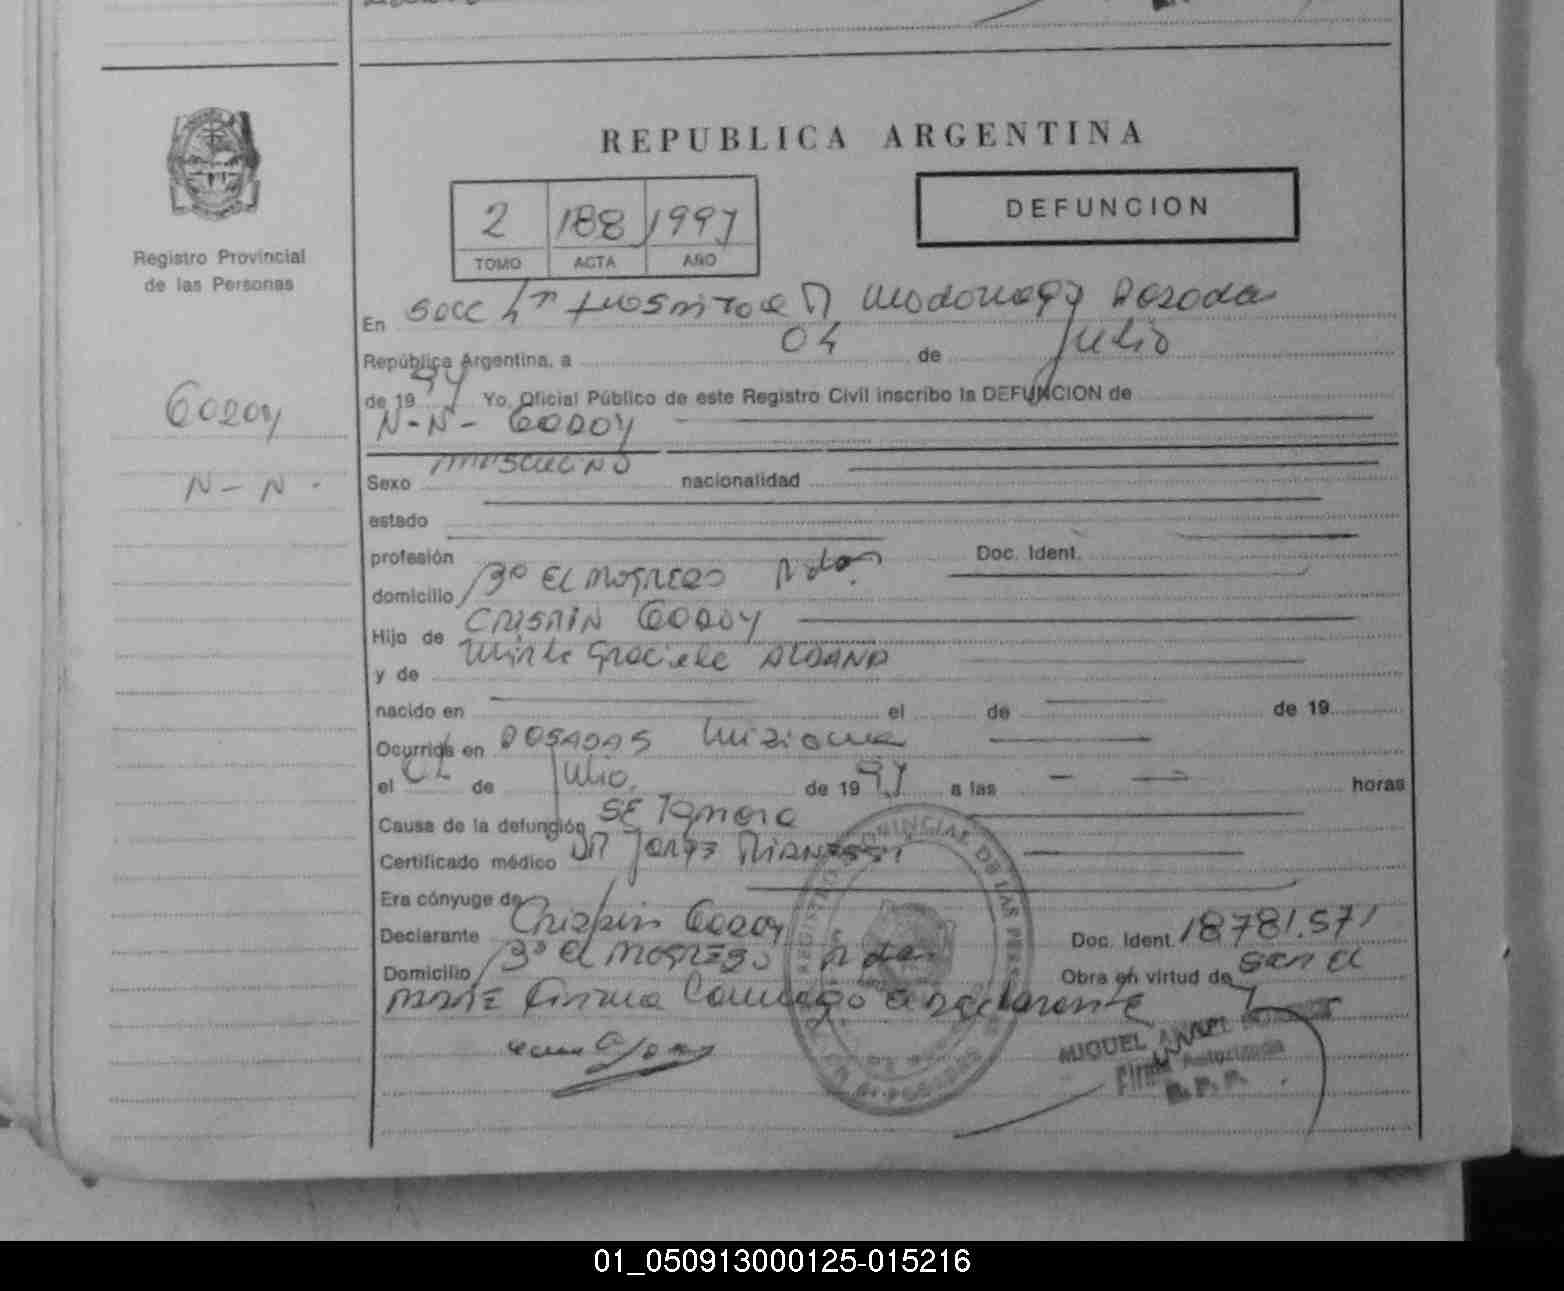 REPUBLICA ARGENTINA
DEFUNCION
2 188 1997
TOMO ACTA AÑO
Registro Provincial
de las Personas
En Secc Posadas
República Argentina, a 04 de Julio
de 19 97 Yo, Oficial Público de este Registro Civil inscribo la DEFUNCION de
GODOY
N-N- GODOY
N-N-
Sexo masculino nacionalidad
estado
profesión Doc. Ident.
domicilio Bº El
Hijo de CRISPIN GODOY
y de Mirta Graciela ALDANA
nacido en el de de 19
Ocurrida en POSADAS Misiones
el de Julio de 19 97 a las horas
Causa de la defunción SE Ignora
Certificado médico DR Jorge
Era cónyuge de
Declarante Crispin Godoy Doc. Ident. 18781.571
Domicilio Bº El Obra en virtud de ser el
Firma Conmigo el declarante
REGISTRO PROVINCIAL DE LAS PERSONAS
MIGUEL
Firma Autorizada
R.P.P.
01_050913000125-015216